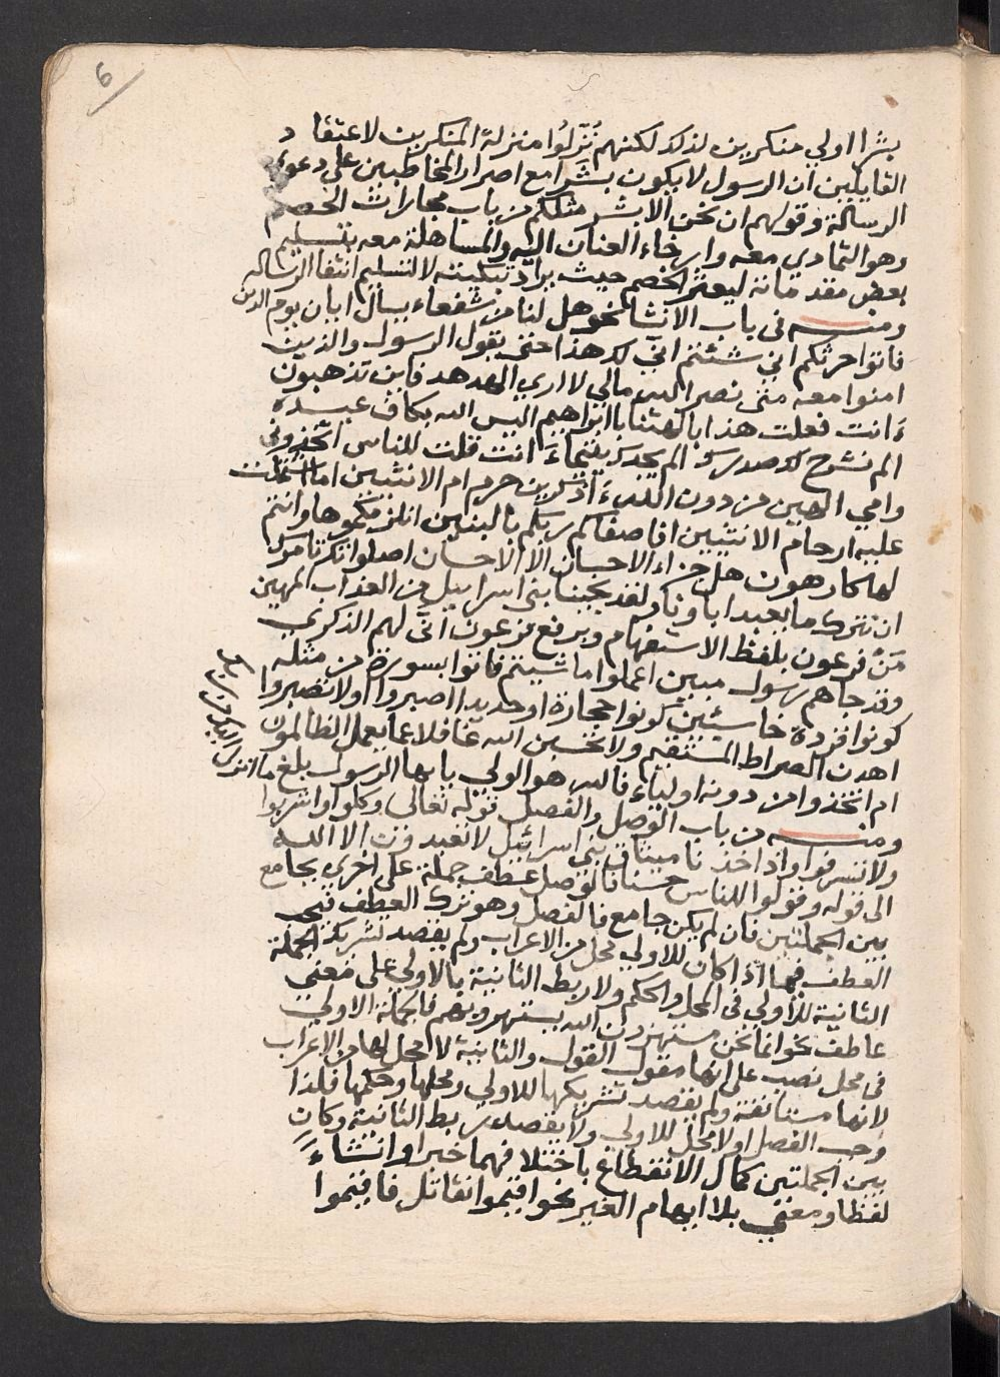 6
بشرا اولي منكرين لذلك لكنهم نُزّلُوا منزلة المنكرين لاعتقاد
القايلين ان الرسول لا يكون بشرا مع اصرار المخاطبين علي دعوي
الرسالة وقولهم ان نحن الا بشر مثلكم من باب مجارات الخصم
وهو التمادي معه وارخاء العنان اليه والمساهلة معه بتسليم
بعض مقدماته ليعثر الخصم حيث يراد تبكيته لا لتسليم انتفا الرساله
ومنـــه في باب الانشا نحو هل لنا من شفعاء يسال ايان يوم الدين
فاتوا حرثكم اني شئتم انّي لك هذا حتي يقول الرسول والذين
امنوا معه متي نصر الله مالي لا اري الهدهد فاين تذهبون
ءَانت فعلت هذا بالهتنا يا ابراهيم اليس الله بكاف عبده
الم نشرح لك صدرك الم يجدك يتيما ءَانت قلت للناس اتخذوني
وامي الهين من دون الله ءَالذكرين حرم ام الانثيين اما اشتملت
عليه ارحام الانثيين افاصفاكم ربكم بالبنين انلزمكموها وانتم
لها كارهون هل جزاء الاحسان الا الاحسان اصلواتك تامرك
ان نترك ما يعبد اباونا ولقد نجينا بني اسراييل من العذاب المهين
مَنْ فرعون بلفظ الاستفهام وبرفع فرعون انّي لهم الذكري
وقد جاهم رسول مبين اعملوا ما شيتم فاتوا بسورة من مثله
كونوا قردة خاسئين كونوا حجارة او حديدا اصبروا او لا تصبروا
اهدنا الصراط المستقيم ولا تحسبن الله غافلا عما يعمل الظالمون
ام اتخذوا من دونه اولياء فالله هو الولي يا ايها الرسول بلغ ما انزل
اليك من ربك
ومنـــه من باب الوصل والفصل قوله تعالي وكلوا واشربوا
ولا تسرفوا واذ اخذنا ميثاق بني اسرائيل لا تعبدون الا الله
الي قوله وقولوا للناس حسنا فالوصل عطف جملة علي اخري بجامع
بين الجملتين فان لم يكن جامع فالفصل وهو ترك العطف فيجب
العطف فيما اذا كان للاولي محل من الاعراب ولم يقصد تشريك الجملة
الثانية للاولي في المحل والحكم ولا ربط الثانية بالاولي علي معني
عاطف نحو انما نحن مستهزون الله يستهزوبهم فالجملة الاولي
في محل نصب علي انها مقول القول والثانية لا محل لها من الاعراب
لانها مستانفة ولم يقصد تشريكها للاولي ومحلها وحكمها فلذا
وجب الفصل اولا محل للاولي ولا يقصد ربط الثانية وكان
بين الجملتين كمال الانقطاع باختلافهما خبرا وانشاءً
لفظا ومعني بلا ايهام الغير نحو اقيموا نقاتل فاقيموا